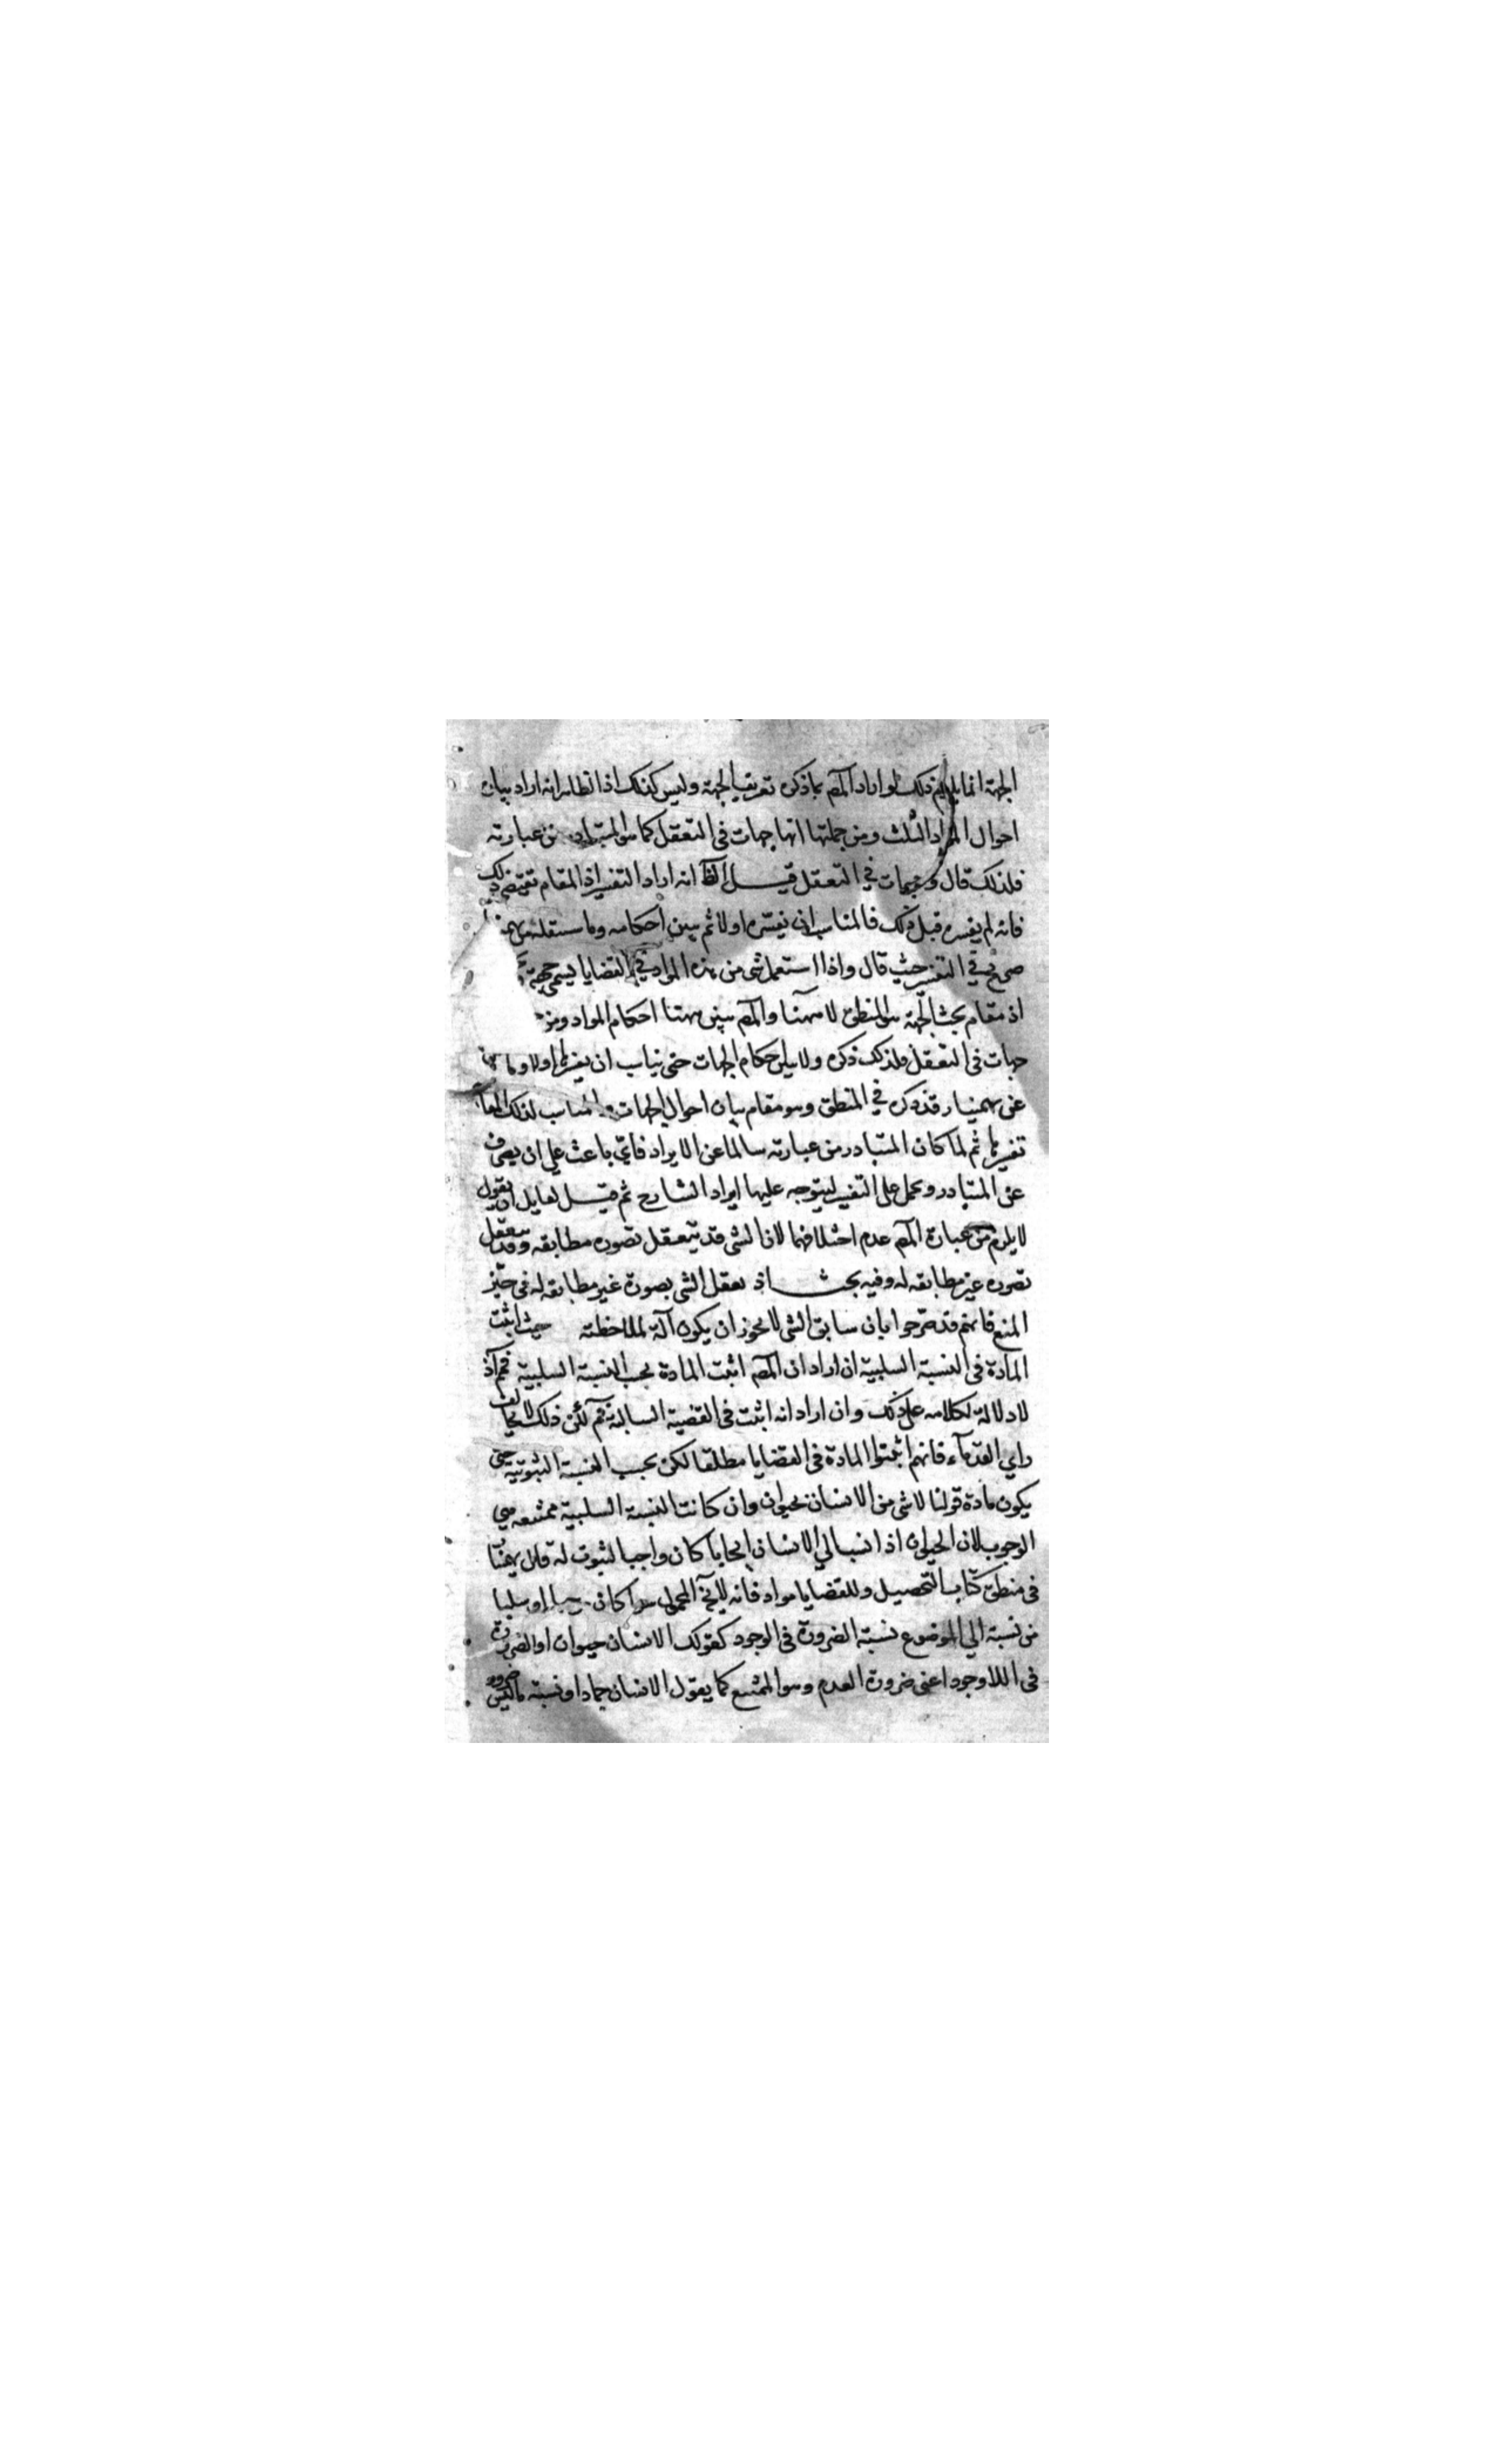 الجهة انما يلايم ذلك لو اراد المصـ بما ذكره تعريف الجهة وليس كذلك اذ الظاهر انه اراد بيان
احوال المواد الثلث ومن جملتها انها جهات فى التعقل كما هو المتبادر من عبارته
فلذلك قال وجهات في التعقل قيل الظ انه اراد التفسير اذ المقام يقتضى ذلك
فانه لم يفسره قبل ذلك فالمناسب ان يفسره اولا ثم يبين احكامه وما سننقله عن بهمنيا
صريح في التفسير حيث قال واذا استعمل شى من هذه المواد في القضايا يسمى جهة
اذ مقام بحث الجهة هو المنطق لا ههنا والمصـ يبين ههنا احكام المواد ومنه
جهات فى التعقل فلذلك ذكره ولا يبين احكام الجهات حتى يناسب ان يفسرها اولا وما
عن بهمنيار قد ذكره في المنطق وهو مقام بيان احوال الجهات والمناسب لذلك المقا
تفسيرها ثم لما كان المتبادر من عبارته سالما عن الايراد فاى باعث على ان يصرف
عن المتبادر ويحمل على التفسير ليتوجه عليها ايراد الشارح ثم قيل لقايل ان يقول
لا يلزم من عبارة المصـ عدم اختلافهما لان الشى قد يتعقل بصوره مطابقه وقد يتعقل
بصوره غير مطابقه له وفيه بحث اذ تعقل الشى بصورة غير مطابقه له فى حيز
المنع فانهم قد صرحوا بان سابق الشى لا يجوز ان يكون آلة لملاحظته حيث اثبت
المادة فى النسبة السلبية ان اراد ان المصـ اثبت المادة بحسب النسبة السلبية فمم اذ
لا دلالة لكلامه على ذلك وان اراد انه اثبت فى القضية السالبة فمم لكن ذلك لا يخالف
راي القدمآء فانهم اثبتوا المادة فى القضايا مطلقا لكن بحسب النسبة الثبوتية حتى
يكون مادة قولنا لا شى من الانسان بحيوان وان كانت النسبة السلبية ممتنعه هي
الوجوب لان الحيوان اذا نسب الي الانسان ايجابا كان واجبا لثبوت له قال بهمنيا
فى منطق كتاب التحصيل وللقضايا مواد فانه لا يخ المحمول سوا كان او سلبا
من نسبة الي الموضوع نسبة الضرورة فى الوجود كقولك الانسان حيوان او الضرورة
فى اللاوجود اعنى ضرورة العدم وهو الممتنع كما يقول الانسان جماد او نسبة ما ليس ضرورو